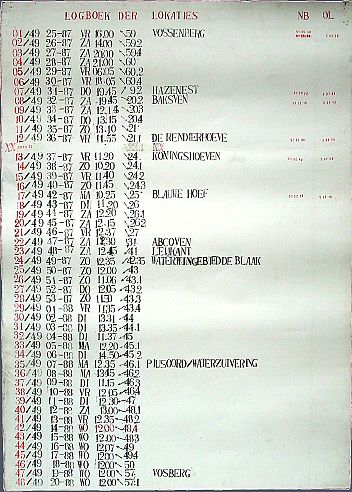 LOGBOEK DER LOKATIES NB OL
01/49 25-87 VR 16.00 59 VOSSENBERG
02/49 26-87 ZA 14.00 59.2
03/49 27-87 ZA 20.00 59.4
04/49 28-87 ZA 21.00 60
05/49 29-87 VR 06.05 60.2
06/49 30-87 VR 18.05 60.4
07/49 31-87 DO 19.45 9.2 HAZENEST
08/49 32-87 ZA 19.45 20.2 BAKSVEN
09/49 33-87 ZA 12.15 20.3
10/49 34-87 DO 13.15 20.4
11/49 35-87 ZO 13.10 21
12/49 36-87 VR 11.55 23.1 DE RENDIERHOEVE
XX XX
13/49 37-87 VR 11.20 24 KONINGSHOEVEN
14/49 38-87 ZO 10.20 24.1
15/49 39-87 VR 11.40 24.2
16/49 40-87 ZO 11.45 24.3
17/49 42-87 MA 10.25 25 BLAUWE HOEF
18/49 43-87 DI 11.20 26
19/49 44-87 ZA 12.20 26.1
20/49 45-87 ZA 12.15 26.2
21/49 46-87 VR 12.37 27
22/49 47-87 ZA 12.30 31 ABCOVEN
23/49 48-87 ZA 12.45 41 LEUKANT
24/49 49-87 VO 12.35 42.35 WATERWINGEBIED DE BLAAK
25/49 50-87 ZO 12.00 43
26/49 51-87 ZO 11.06 43.1
27/49 52-87 DO 12.05 43.2
28/49 53-87 ZO 11.30 43.3
29/49 01-88 VR 11.35 43.4
30/49 02-88 DI 13.31 44
31/49 03-88 DI 13.35 44.1
32/49 04-88 DI 11.37 45
33/49 05-88 MA 12.20 45.1
34/49 06-88 DI 14.50 45.2
35/49 07-88 MA 12.35 46.1 PIUSOORD/WATERZUIVERING
36/49 08-88 MA 13.45 46.2
37/49 09-88 DI 11.15 46.3
38/49 10-88 VR 12.05 46.4
39/49 11-88 DI 12.30 47
40/49 12-88 ZA 13.00 48.1
41/49 13-88 VR 12.35 48.2
42/49 14-88 WO 12.00 48.4
43/49 15-88 WO 12.00 48.3
44/49 16-88 WO 12.07 49
45/49 17-88 WO 12.00 49.4
46/49 18-88 WO 12.00 50
47/49 19-88 WO 12.00 57 VOSBERG
48/49 20-88 WO 12.00 57.1